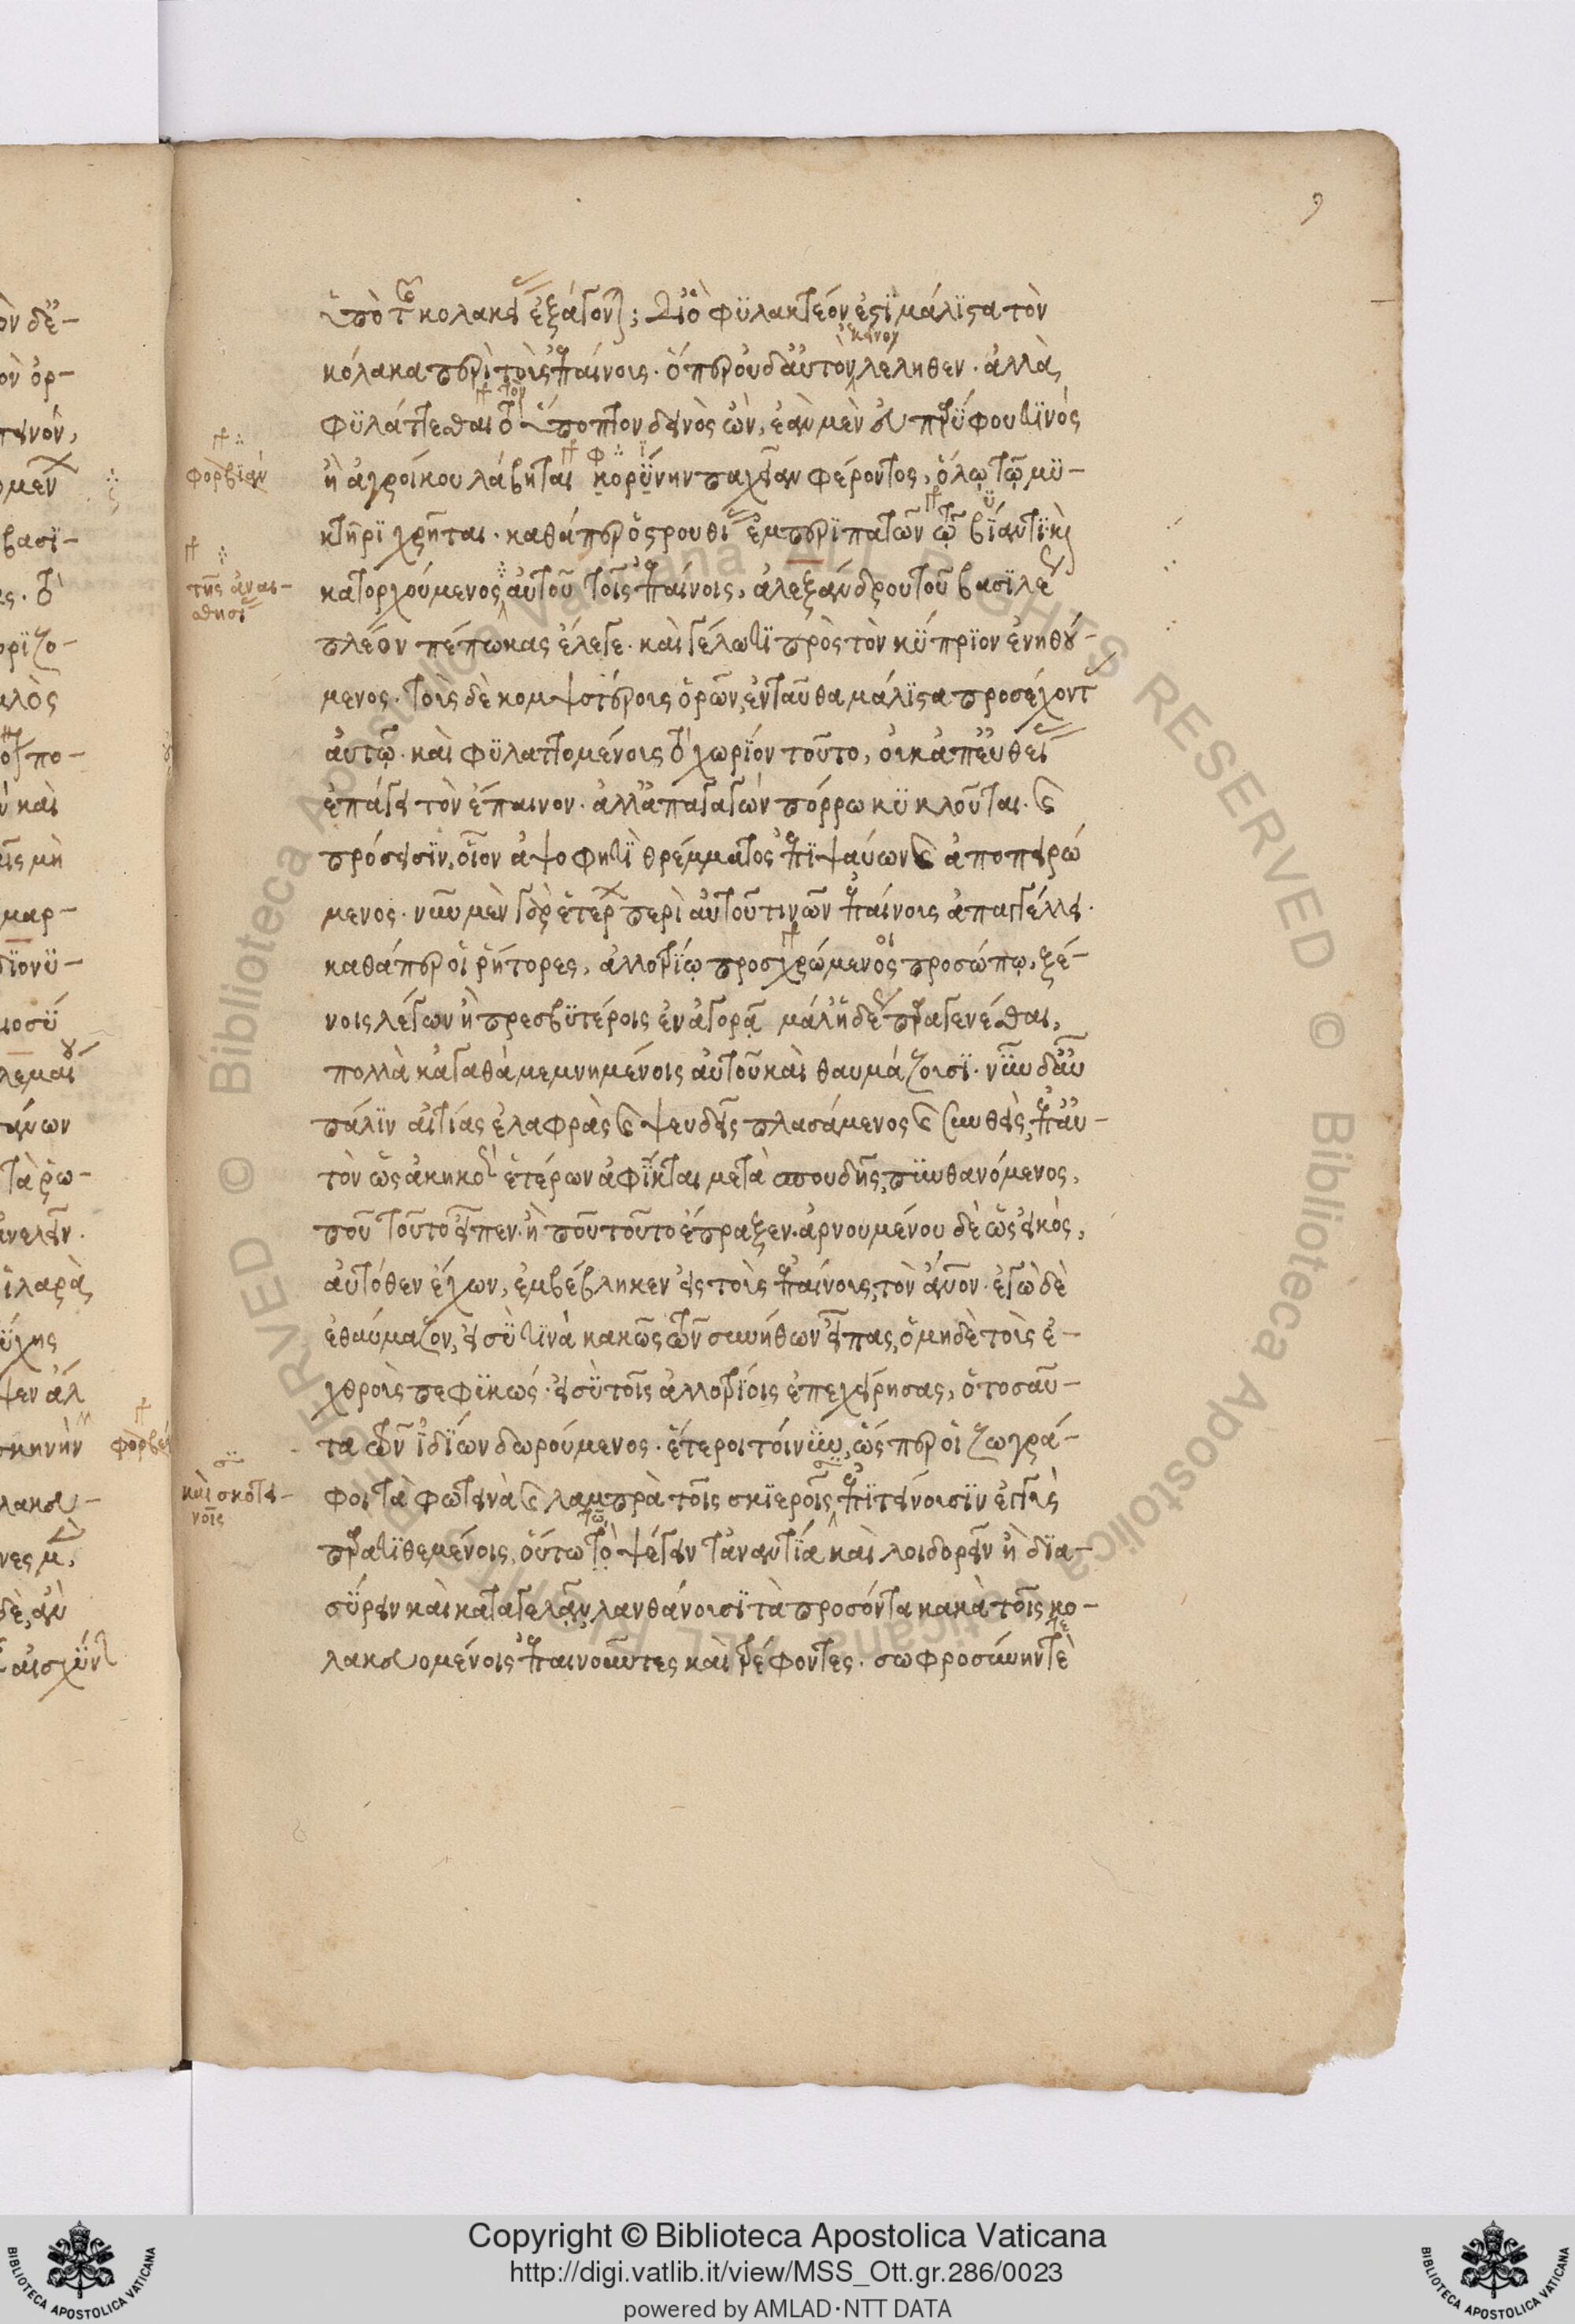 9
ὑπὸ τῶν κολακείας ἐξάγονται; Διὸ φυλακτέον ἐστὶ μάλιστα τὸν
κόλακα περὶ τοὺς ἐπαίνους. ὅπερ οὐδ' αὐτὸν ἐκεῖνον λέληθεν. ἀλλὰ
φυλάττεσθαι τὸ ὕποπτον δεινὸς ὤν, ἐὰν μὲν εὐπαρύφου τινὸς
ἢ ἀγροίκου λάβηται κορύνην παχεῖαν φέροντος, ὅλῳ τῷ μυ-
κτῆρι χρῆται. καθάπερ ὁ Στρουθίας ἐμπεριπατῶν τῷ βίαντι καὶ
κατορχούμενος αὐτοῦ τοῖς ἐπαίνοις, ἀλεξάνδρου τοῦ βασιλέως
πλέον πέπωκας ἔλεγε. καὶ γέλωτι πρὸς τὸν κύπριον ἐνηθού-
μενος. τοὺς δὲ κομψοτέρους ὁρῶν, ἐνταῦθα μάλιστα προσέχοντας
αὐτῷ. καὶ φυλαττομένους τὸ χωρίον τοῦτο, οὐκ ἀπ' εὐθείας
ἐπάγει τὸν ἔπαινον. ἀλλ' ἀπαγαγὼν πόρρω κυκλοῦται. καὶ
πρόσεισιν, οἷον ἀψοφητὶ θρέμματος ἐπιψαύων καὶ ἀποπειρώ
μενος. νῦν μὲν γὰρ ἑτέρων περὶ αὐτοῦ τινῶν ἐπαίνους ἀπαγγέλλει.
καθάπερ οἱ ῥήτορες, ἀλλοτρίῳ προσχρώμενος προσώπῳ, ξέ-
νοις λέγων ἢ πρεσβυτέροις ἐν ἀγορᾷ μάλ' ἡδέως παραγενέσθαι,
πολλὰ κἀγαθὰ μεμνημένοις αὐτοῦ καὶ θαυμάζουσι. νῦν δ' αὖ
πάλιν αἰτίας ἐλαφρὰς καὶ ψευδεῖς πλασάμενος καὶ συνθεὶς, ἐπ' αὐ-
τὸν ὡς ἀκηκοὼς ἑτέρων ἀφῖκται μετὰ σπουδῆς, πυνθανόμενος,
ποῦ τοῦτο εἶπεν. ἢ ποῦ τοῦτο ἔπραξεν. ἀρνουμένου δὲ ὡς εἰκὸς,
αὐτόθεν ἔχων, ἐμβέβληκεν εἰς τοὺς ἐπαίνους, τὸν ἄνθρωπον. ἐγὼ δὲ
ἐθαύμαζον, εἰ σύ τινα κακῶς τῶν συνήθων εἶπας, ὁ μηδὲ τοὺς ἐ-
χθροὺς πεφυκώς. εἰ σὺ τοῖς ἀλλοτρίοις ἐπεχείρησας, ὁ τοσαῦ-
τα τῶν ἰδίων δωρούμενος. ἕτεροι τοίνυν, ὥσπερ οἱ ζωγρά-
φοι τὰ φωτεινὰ καὶ λαμπρὰ τοῖς σκιεροῖς ἐπιτείνουσιν ἐγγὺς
παρατιθεμένοις, οὕτω τῷ ψέγειν τἀναντία καὶ λοιδορεῖν ἢ δια-
σύρειν καὶ καταγελᾷν, λανθάνουσι τὰ προσόντα κακὰ τοῖς κο-
λακευομένοις ἐπαινοῦντες καὶ τρέφοντες. σωφροσύνην τε
φορβειὰν
τῆς ἀναι-
σθησίας
καὶ σκοτει-
νοῖς
Copyright © Biblioteca Apostolica Vaticana
http://digi.vatlib.it/view/MSS_Ott.gr.286/0023
powered by AMLAD·NTT DATA